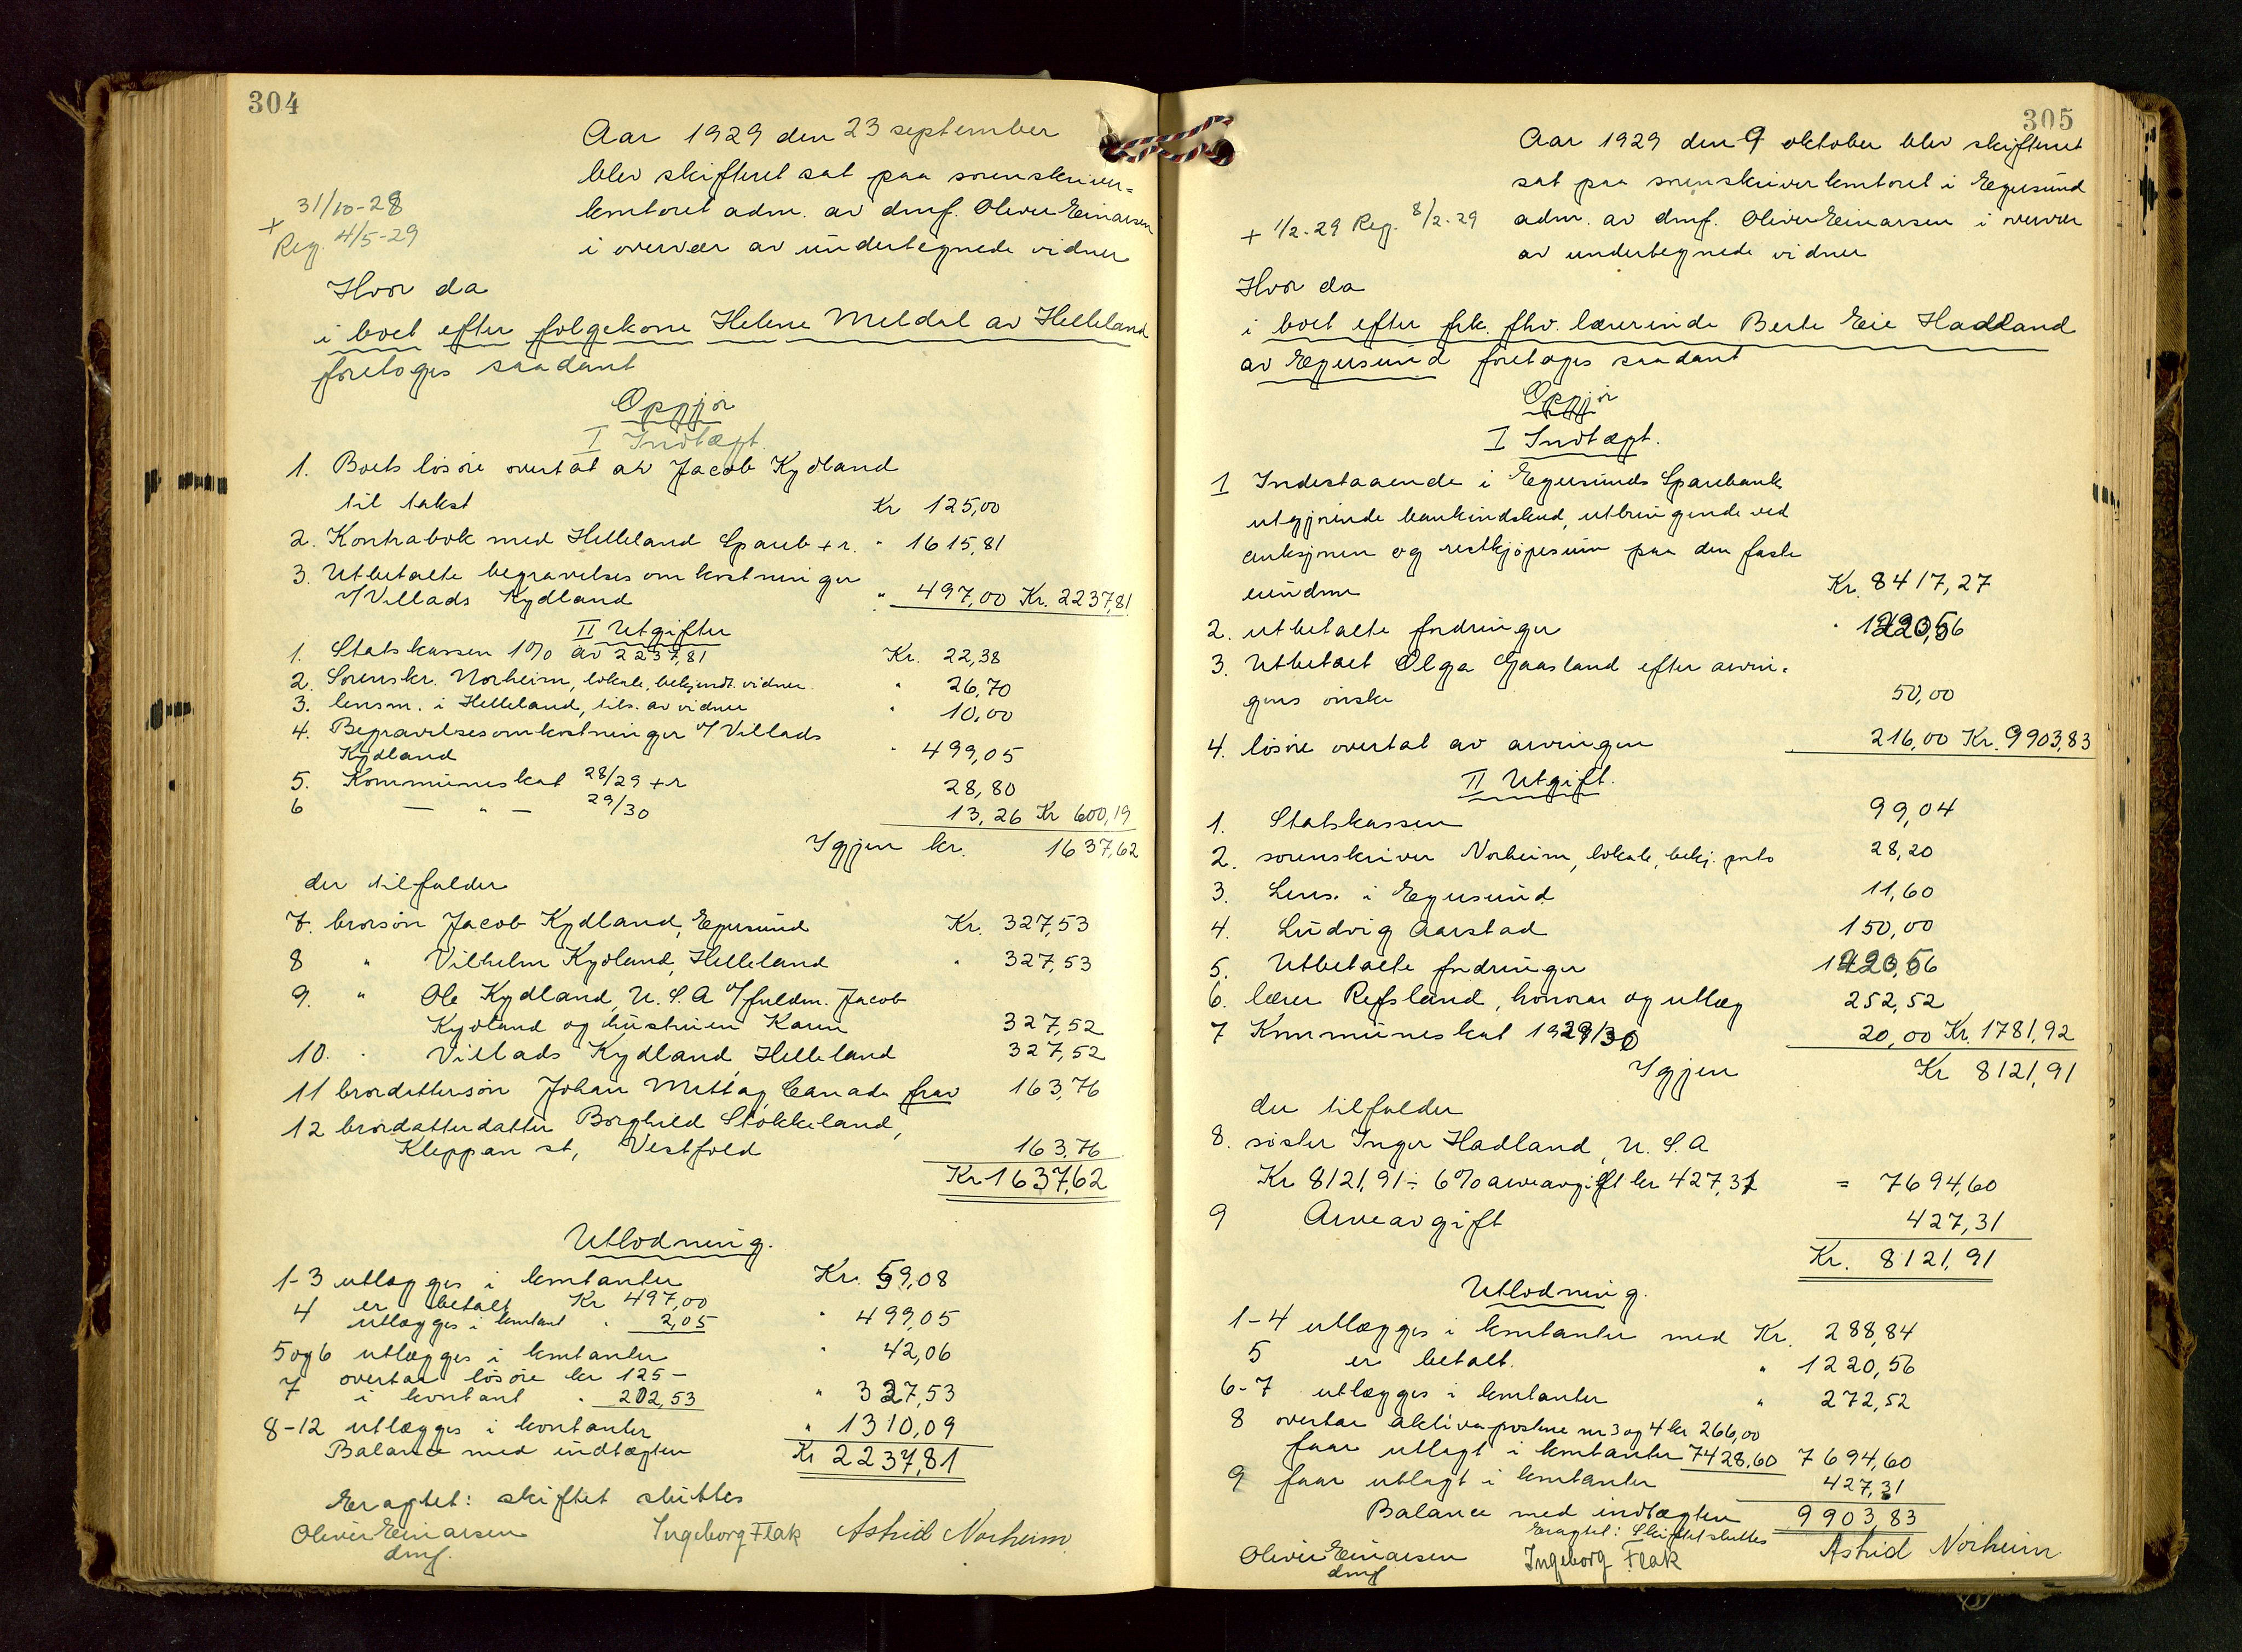 304
Aar 1929 den 23 september
blev skifteret sat paa sorenskriver-
kontoret adm. av dmf. Oliver Einarsen
i overvær av undertegnede vidner
+ 31/10-28
Reg. 4/5-29
Hvor da
i boet efter folgekone Helene Meldal av Helleland
foretoges saadant
Oppjör
I Indtægt.
1. Boets lösöre overtat av Jacob Kydland
til takst Kr 125,00
2. Kontrabok med Helleland Spareb + r. " 1615,81
3. Utbetalte begravelsesomkostninger
v/ Villads Kydland " 497,00 Kr. 2237,81
II Utgifter
1. Statskassen 1% av 2237,81 Kr. 22,38
2. Sorenskr. Norheim, lokale, bekjendt. vidner. " 26,70
3. lensm. i Helleland, tils. av vidner " 10,00
4. Begravelsesomkostninger v/ Villads
Kydland " 499,05
5. Kommuneskat 28/29 + r 28,80
6 — " — 29/30 13,26 Kr 600,19
Igjen kr. 1637,62
der tilfalder
7. brorsön Jacob Kydland, Egersund Kr. 327,53
8 " Vilhelm Kydland, Helleland " 327,53
9. " Ole Kydland, U.S.A v/ fuldm. Jacob
Kydland og hustruen Karen 327,52
10. " Villads Kydland, Helleland 327,52
11 brordattersön Johan Mettag, Canada frav 163,76
12 brordatterdatter Borghild Stokkeland,
Kleppan st, Vestfold 163,76
Kr 1637,62
Utlodning.
1-3 utlægges i kontanter Kr. 59,08
4 er betalt Kr 497,00
utlægges i kontant " 2,05 " 499,05
5 og 6 utlægges i kontanter " 42,06
7 overtar lösöre kr 125 -
i kontant " 202,53 " 327,53
8-12 utlægges i kontanter " 1310,09
Balance med indtægten Kr 2237,81
Eragtet: skiftet sluttes
Oliver Einarsen Ingeborg Flak Astrid Norheim
dmf.
305
Aar 1929 den 9 oktober blev skifteret
sat paa sorenskriverkontoret i Egersund
adm. av dmf. Oliver Einarsen i overvær
av undertegnede vidner
+ 1/2-29 Reg. 8/2-29
Hvor da
i boet efter frk. fhv. lærerinde Berte Eie Hadland
av Egersund foretoges saadant
Oppjör
I Indtægt.
1 Indestaaende i Egersunds Sparebank
utgjörende bankindskud, utbringende ved
auksjonen og restkjöpesum paa den faste
eiendom Kr. 8417,27
2. utbetalte fordringer " 1220,56
3. Utbetalt Olga Gaasland efter arvin-
gens önske 50,00
4. lösöre overtat av arvingen 216,00 Kr. 9903,83
II Utgift.
1. Statskassen 99,04
2. sorenskriver Norheim, lokale, bekj. porto 28,20
3. Lens. i Egersund 11,60
4. Ludvig Aarstad 150,00
5. Utbetalte fordringer 1220,56
6. lærer Refsland, honorar og utlæg 252,52
7 Kommuneskat 1929/30 20,00 Kr. 1781,92
Igjen Kr 8121,91
der tilfalder
8. söster Inger Hadland, U.S.A
Kr 8121,91 ÷ 6% arveavgift kr 427,31 = 7694,60
9 Arveavgift 427,31
Kr. 8121,91
Utlodning.
1-4 utlægges i kontanter med Kr. 288,84
5 er betalt. " 1220,56
6-7 utlægges i kontanter " 272,52
8 overtar aktivaposterne nr 3 og 4 kr 266,00
faar utlagt i kontanter 7428,60 7694,60
9 faar utlagt i kontanter 427,31
Balance med indtægten 9903,83
Eragtet: Skiftet sluttes
Oliver Einarsen Ingeborg Flak Astrid Norheim
dmf